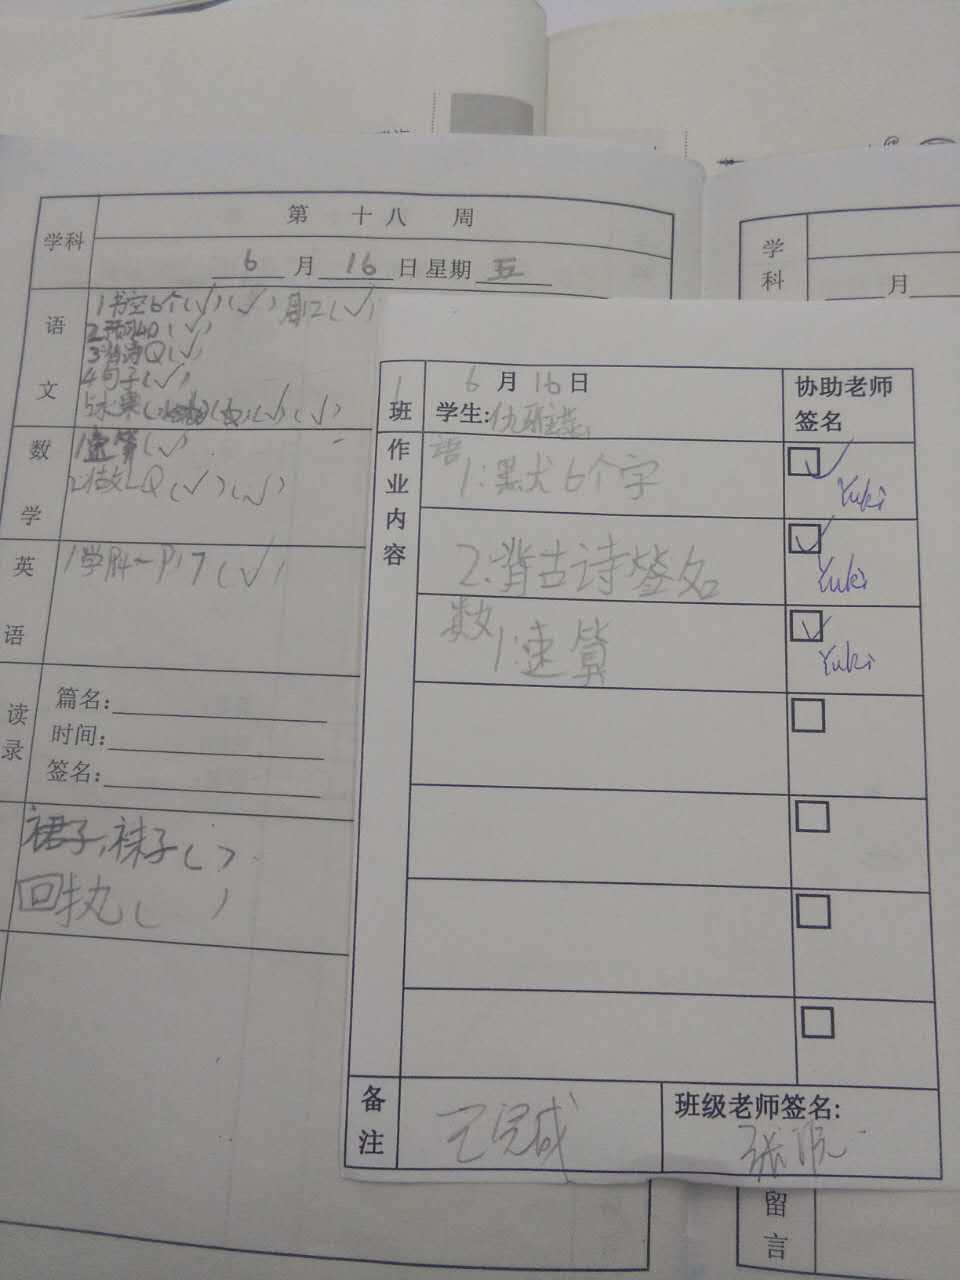 第 十八 周
学科
6 月 16 日 星期 五
语文
1书空6个(√)(√) 周12(√)
2预习40(√)
3背诗Q(√)
4句子(√)
5水果(√)(√)
数学
1速算(√)
2 Q(√)(√)
英语
1学P14~P17(√)
读
录
篇名:
时间:
签名:
裙子,袜子( )
回执( )
学科
月
1班
6 月 16 日
学生:
协助老师
签名
作业内容
语
1:默写6个字
Yuki
2:背古诗签名
Yuki
数
1:速算
Yuki
备注
已完成
班级老师签名:
留言